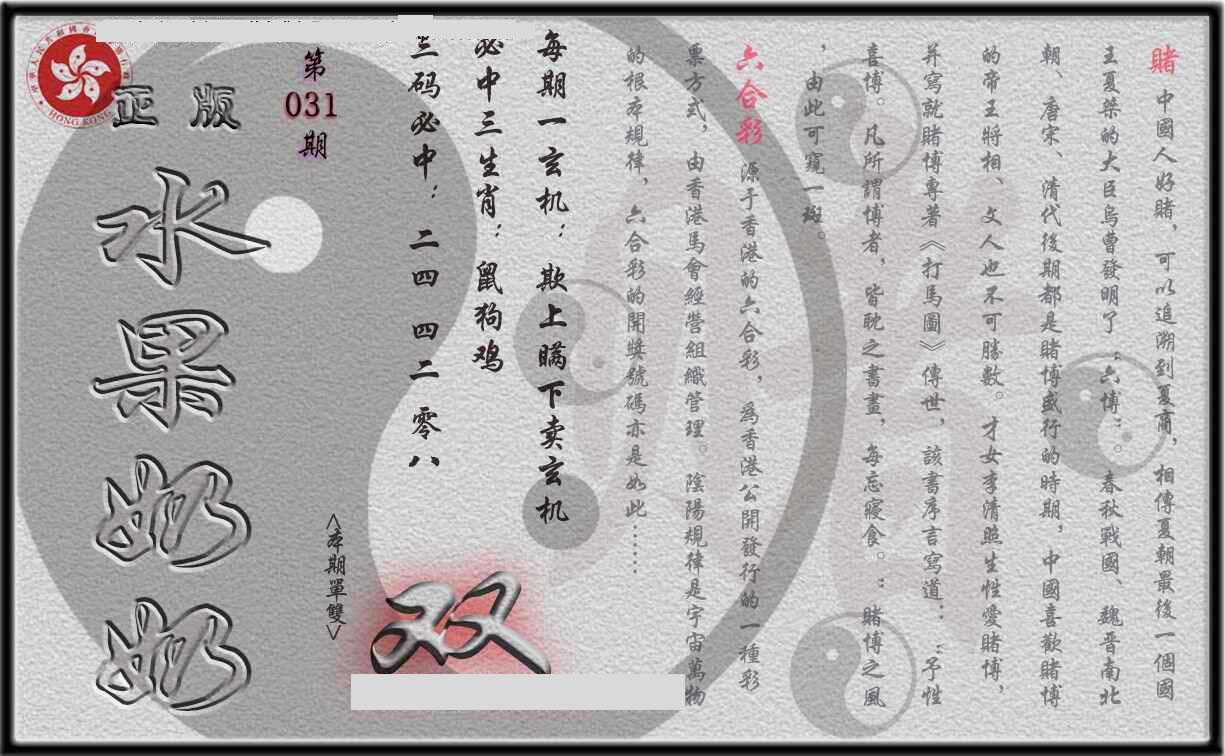 賭 中國人好賭，可以追溯到夏商，相傳夏朝最後一個國
王夏桀的大臣烏曹發明了“六博”。春秋戰國、魏晋南北
朝、唐宋、清代後期都是賭博盛行的時期，中國喜歡賭博
的帝王將相、文人也不可勝數。才女李清照生性愛賭博，
并寫就賭博專著《打馬圖》傳世，該書序言寫道：“予性
喜博。凡所謂博者，皆耽之書晝，每忘寢食。”賭博之風
，由此可窺一斑。
六合彩 源于香港的六合彩，爲香港公開發行的一種彩
票方式，由香港馬會經營組織管理。陰陽規律是宇宙萬物
的根本規律，六合彩的開獎號碼亦是如此……
每期一玄机：欺上瞒下卖玄机
必中三生肖：鼠狗鸡
三码必中：二四 四二 零八
第
031
期
<本期單雙>
双
正版
水果奶奶
HONG KONG